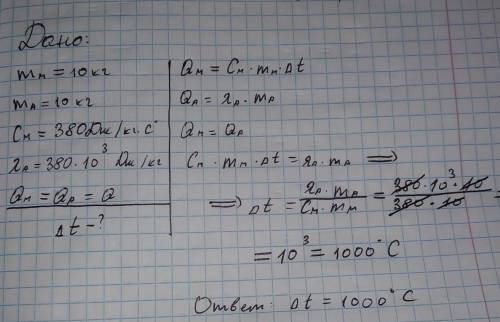 Дано:
mм = 10 кг
mл = 10 кг
Cм = 380 Дж/кг·C°
λл = 380·10³ Дж/кг
Qм = Qл = Q
Δt - ?
Qм = Cм · mм · Δt
Qл = λл · mл
Qм = Qл
Cм · mм · Δt = λл · mл ⟹
⟹ Δt = λл · mл / Cм · mм = 380·10³·10 / 380·10 =
= 10³ = 1000°C
Ответ: Δt = 1000°C